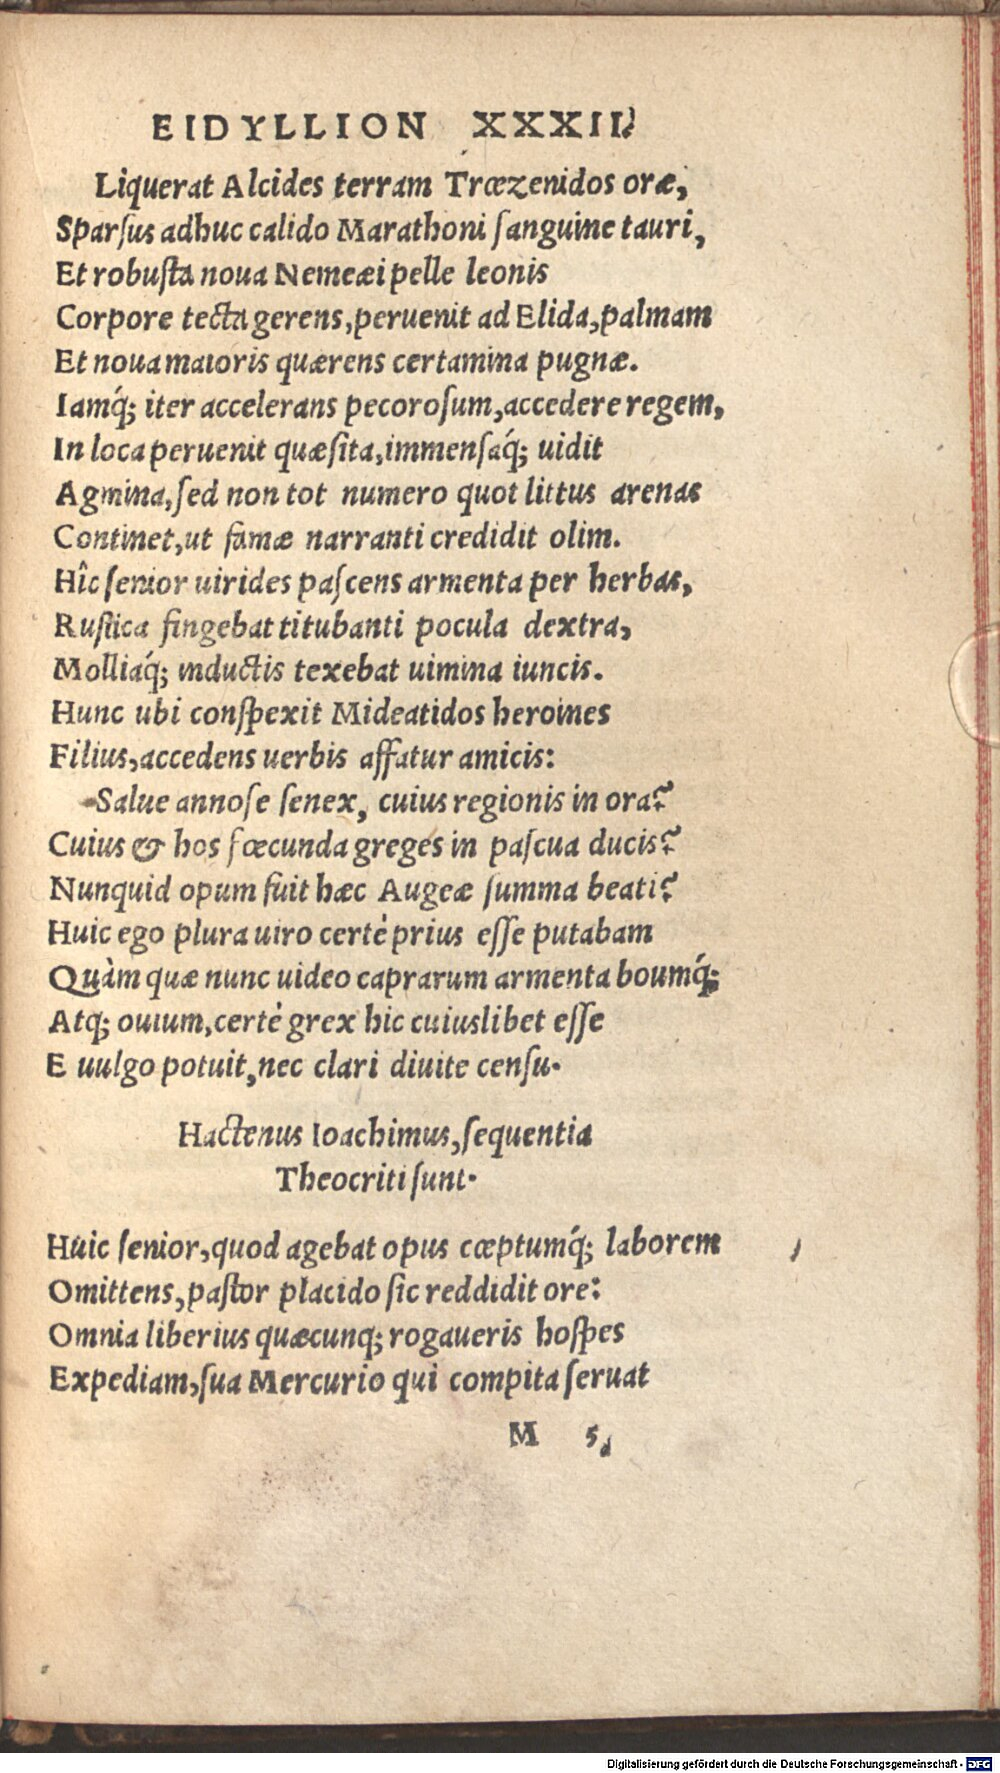 EIDYLLION XXXII.
Liquerat Alcides terram Trœzenidos oræ,
Sparſus adhuc calido Marathoni ſanguine tauri,
Et robuſta noua Nemeæi pelle leonis
Corpore tecta gerens, peruenit ad Elida, palmam
Et noua maioris quærens certamina pugnæ.
Iamq́; iter accelerans pecoroſum, accedere regem,
In loca peruenit quæſita, immenſaq́; uidit
Agmina, ſed non tot numero quot littus arenas
Continet, ut famæ narranti credidit olim.
Hîc ſenior uirides paſcens armenta per herbas,
Ruſtica fingebat titubanti pocula dextra,
Molliaq́; inductis texebat uimina iuncis.
Hunc ubi conſpexit Mideatidos heroines
Filius, accedens uerbis affatur amicis:
Salue annoſe ſenex, cuius regionis in ora?
Cuius & hos fœcunda greges in paſcua ducis?
Nunquid opum fuit hæc Augeæ ſumma beati?
Huic ego plura uiro certè prius eſſe putabam
Quàm quæ nunc uideo caprarum armenta boumq́;
Atq; ouium, certè grex hic cuiuslibet eſſe
E uulgo potuit, nec clari diuite cenſu.
Hactenus Ioachimus, ſequentia
Theocriti ſunt.
Huic ſenior, quod agebat opus cœptumq́; laborem
Omittens, paſtor placido ſic reddidit ore:
Omnia liberius quæcunq; rogaueris hoſpes
Expediam, ſua Mercurio qui compita ſeruat
M 5
Digitalisierung gefördert durch die Deutsche Forschungsgemeinschaft - DFG